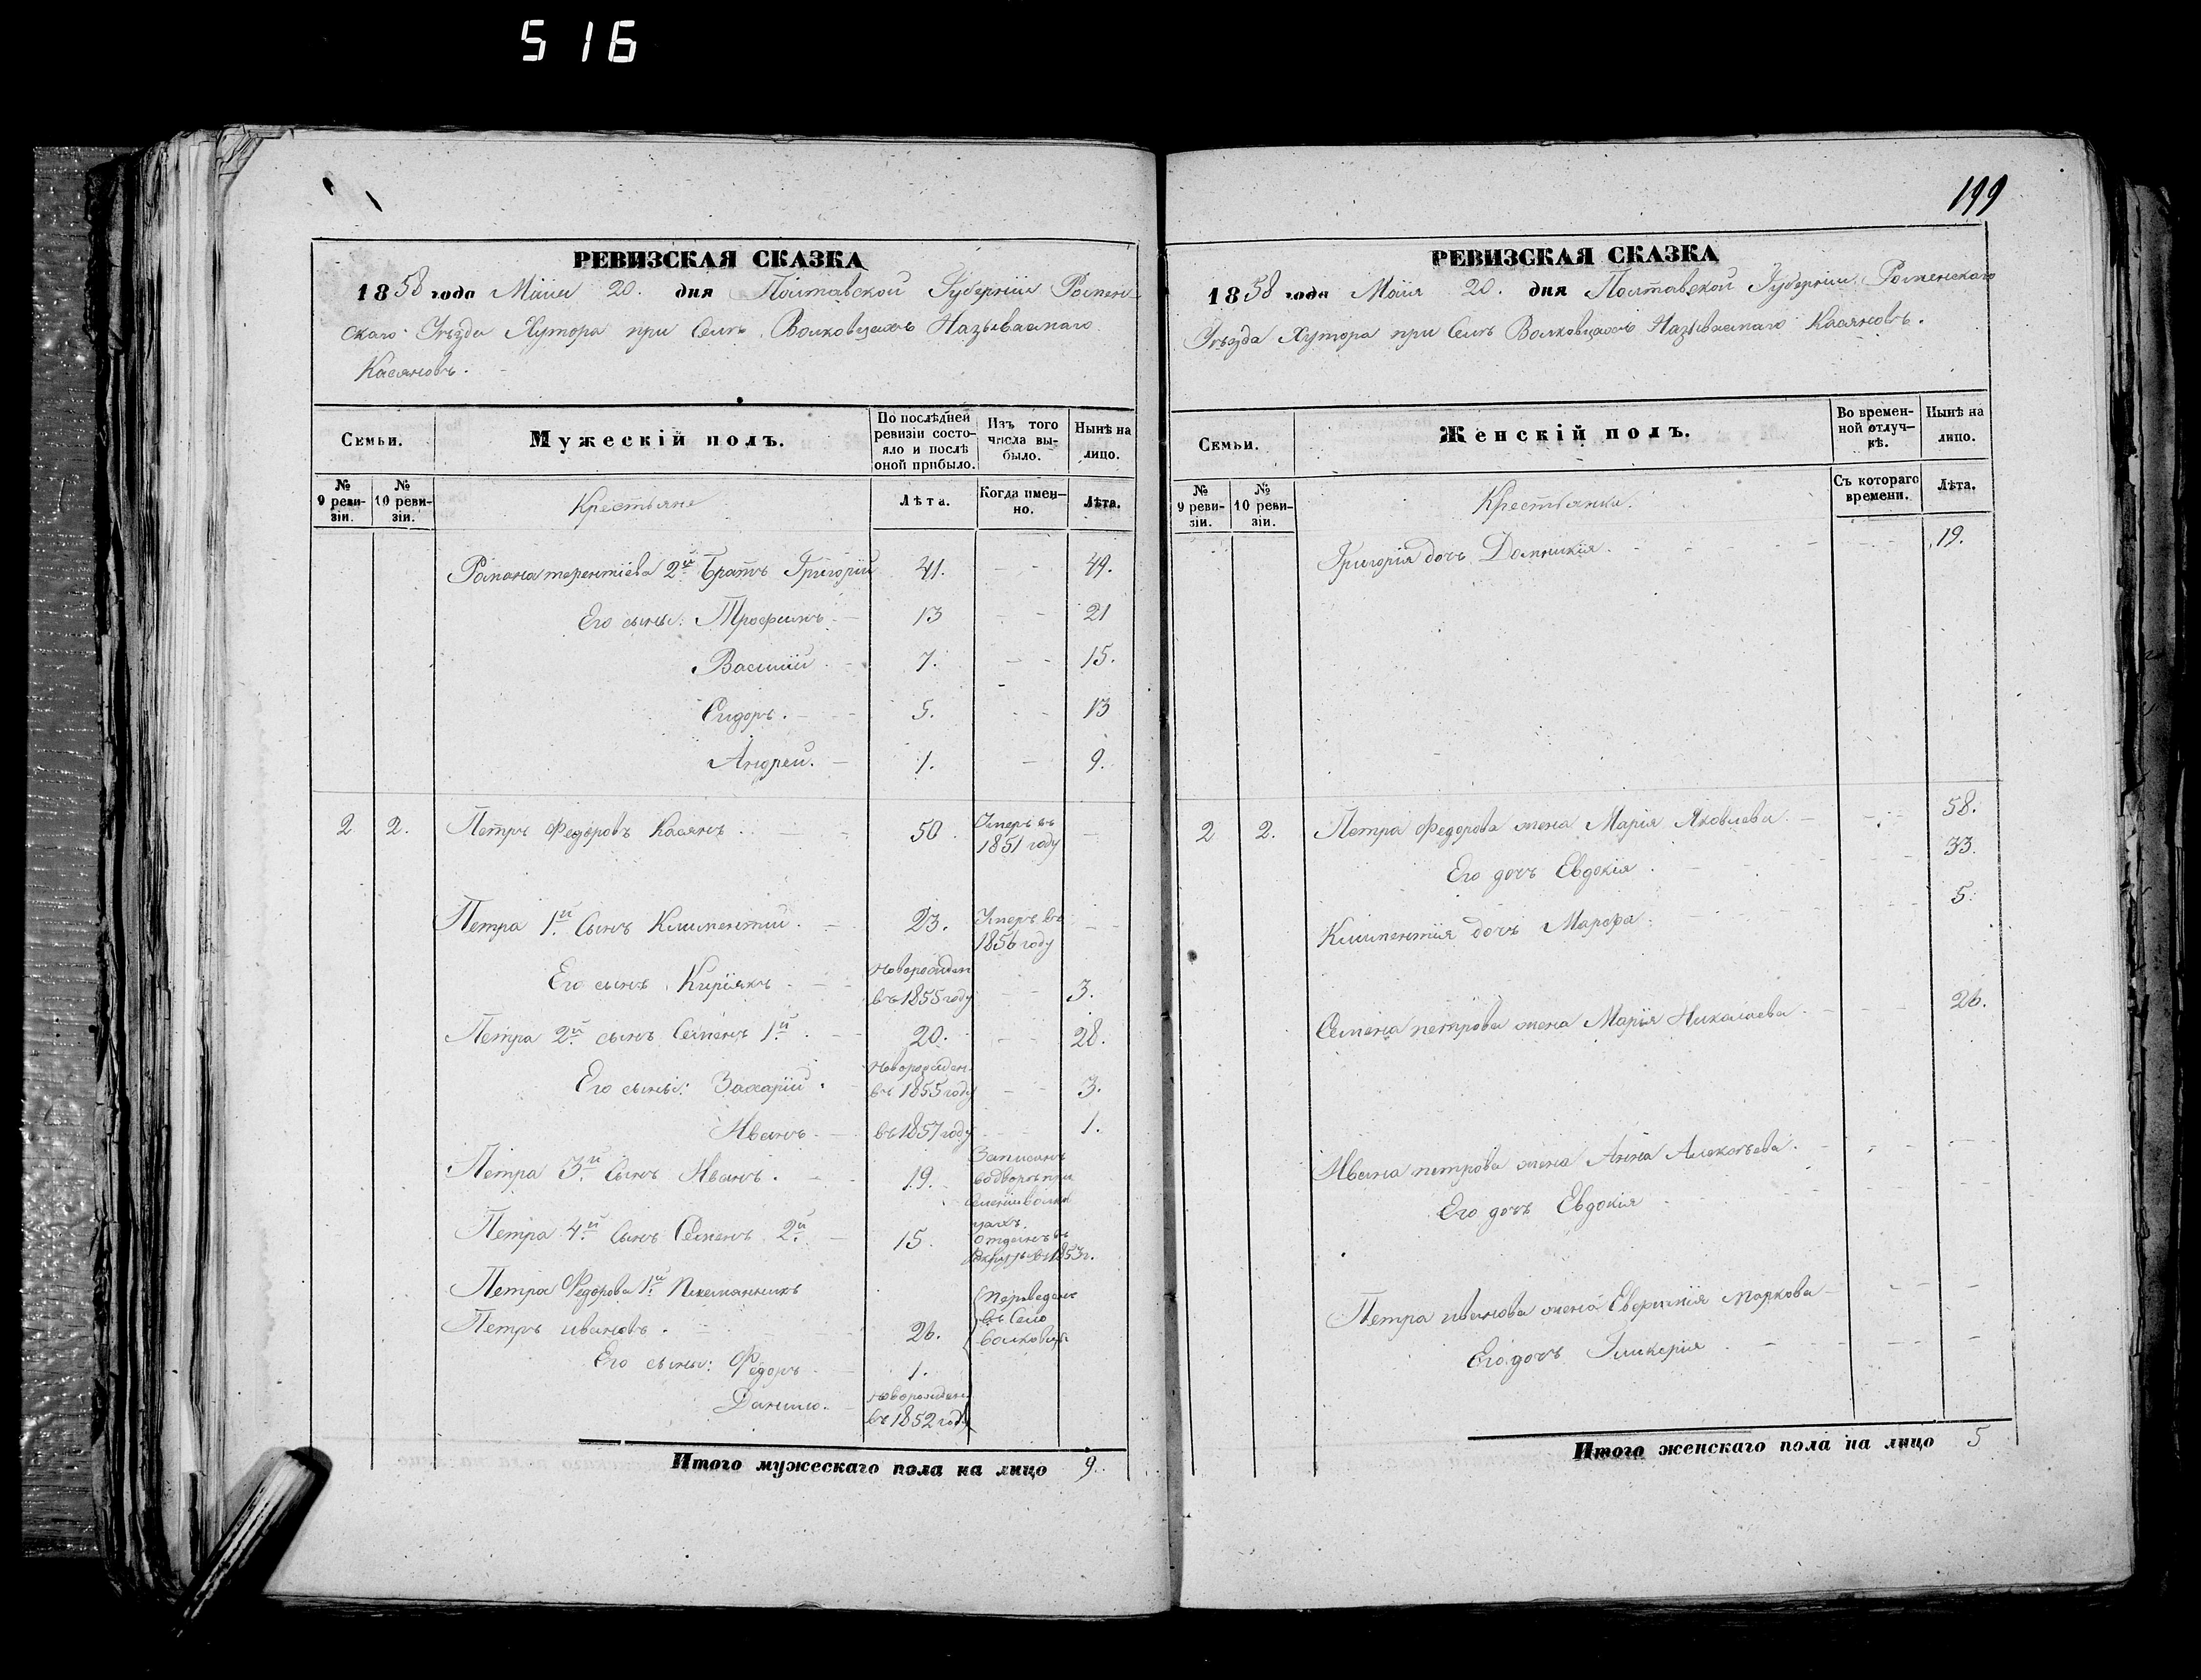 516
РЕВИЗСКАЯ СКАЗКА
1858 года Маия 20. дня Полтавской Губернии Ромен-
скаго Уѣзда Хутора при Селѣ Волковцахъ Называемаго
Касяновъ.
Семьи.
Мужескій полъ.
По послѣдней ревизіи состояло и послѣ оной прибыло.
Изъ того числа выбыло.
Нынѣ на лицо.
№ 9 ревизіи.
№ 10 ревизіи.
Крестьяне
Лѣта.
Когда именно.
Лѣта.
Романа терентіева 2й Братъ Григорій 41. - - 49.
Его сыны: Трофимъ - 13 - - 21
Василій - 7. - - 15.
Сидоръ. - 5. - - 13
Андрей. - 1. - 9.
2 2. Петръ Федоровъ Касянъ. - 50. Умеръ въ 1851 году -
Петра 1й Сынъ Климентий. - 23. Умеръ въ 1856 году - -
Его сынъ Киріякъ - новорожден въ 1855 году - - 3.
Петра 2й сынъ Семенъ 1й. - 20. - - 28.
Его сыны: Захарій. новорожден въ 1855 году - - 3.
Иванъ. - въ 1857 году - - 1.
Петра 3й Сынъ Иванъ. - 19. Записанъ
Петра 4й Сынъ Семенъ 2й. - 15. отданъ въ рекруты въ 1853 г.
Петра Федорова 1й Племянникъ
Петръ ивановъ. - 26. переведенъ въ Село волковцы
Его сыны: Федоръ - 1.
Данило. - новорожден въ 1852 году
Итого мужескаго пола на лицо 9.
199
РЕВИЗСКАЯ СКАЗКА
1858 года Маия 20. дня Полтавской Губернии Роменскаго
Уѣзда Хутора при Селѣ Волковцахъ Называемаго Касяновъ.
Семьи.
Женскій полъ.
Во временной отлучкѣ.
Нынѣ на лицо.
№ 9 ревизіи.
№ 10 ревизіи.
Крестьянки.
Съ котораго времени.
Лѣта.
Григорія дочь Домникія. - - - 19.
2 2. Петра Федорова жена Марія Яковлева - - 58.
Его дочь Евдокія - - 33.
Климентія дочь Марфа - - 5.
Семена петрова жена Марія Николаева - - 26.
Ивана петрова жена Анна Алексѣева. - - -
Его дочь Евдокія - - -
Петра иванова жена Евфимія маркова - - -
Его дочь Гликерія - - -
Итого женскаго пола на лицо 5